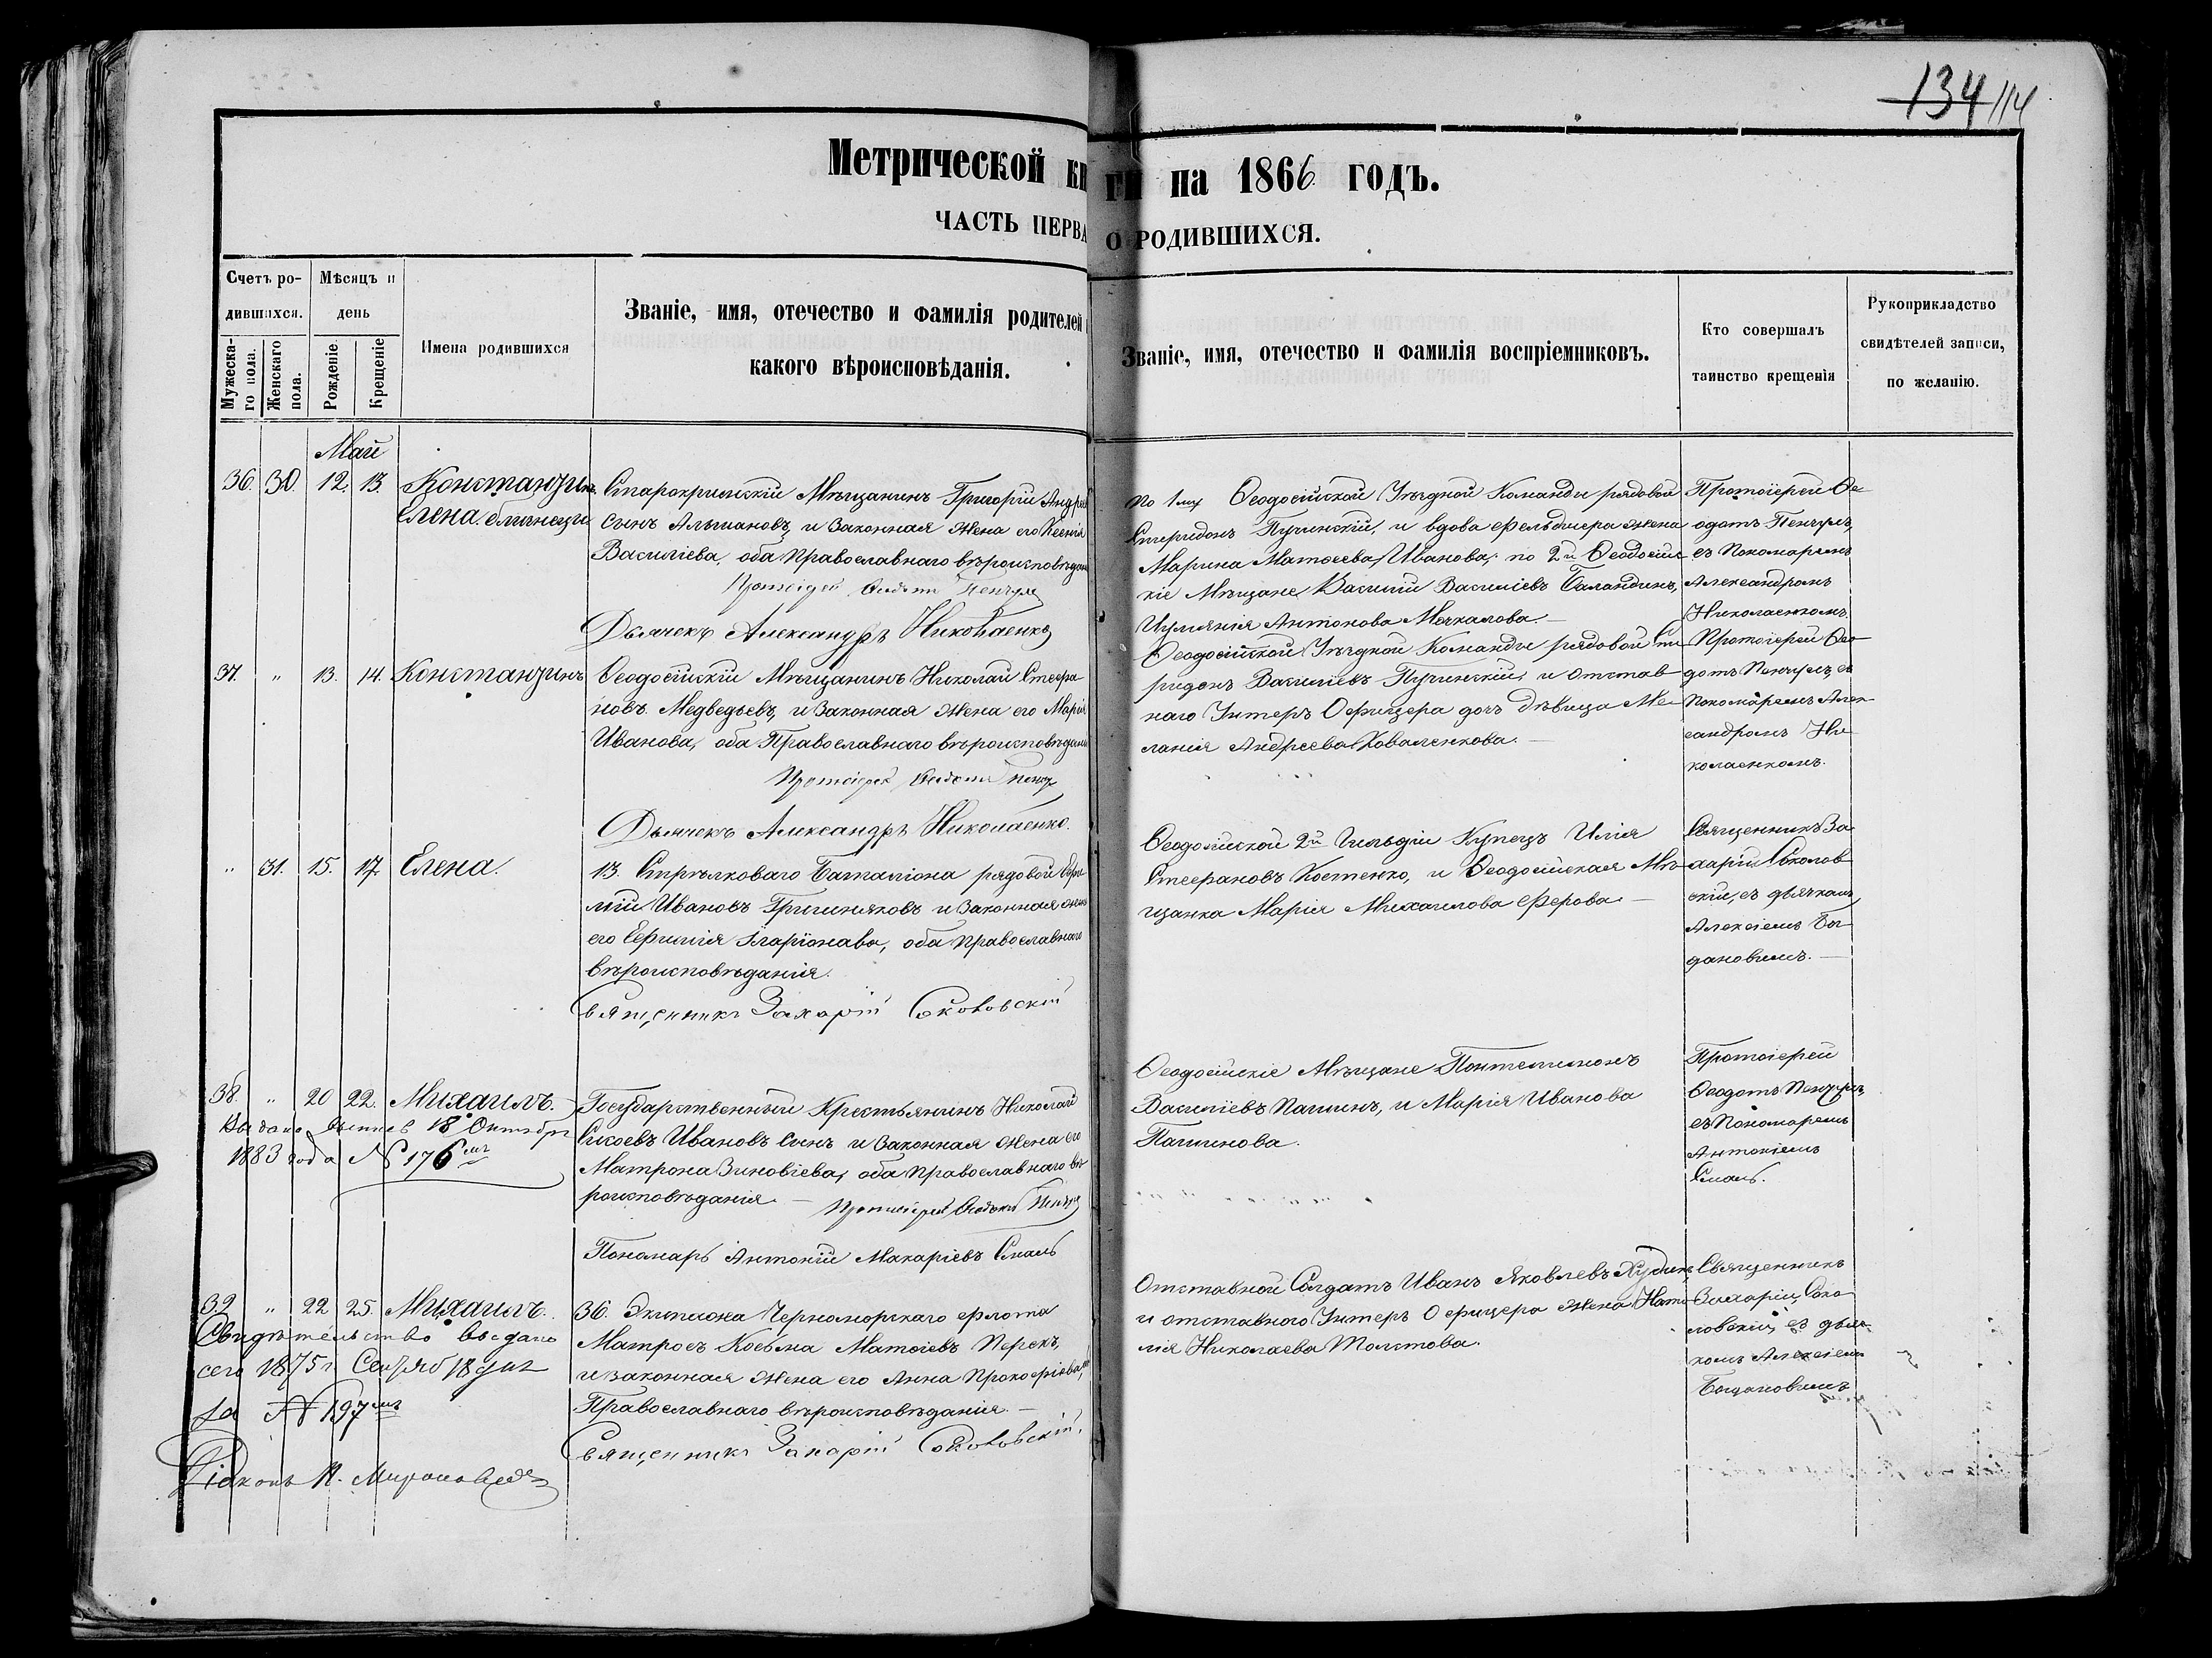 134 114
Метрической кни
ги на 1866 годъ.
ЧАСТЬ ПЕРВА
О РОДИВШИХСЯ.
Счетъ ро-
дившихся.
Мужеска-
го пола.
Женскаго
пола.
Мѣсяцъ и
день
Рожденіе
Крещеніе
Имена родившихся
Званіе, имя, отечество и фамилія родителей
какого вѣроисповѣданія.
Званіе, имя, отечество и фамилія воспріемниковъ.
Кто совершалъ
таинство крещенія
Рукоприкладство
свидѣтелей записи,
по желанію.
Май
36. 30. 12. 13. Константинъ
Елена близнецы
Старокрымскій Мѣщанинъ Григорій Андреевъ
сынъ Альмановъ, и Законная Жена его Ксенія
Василіева, оба Православнаго вѣроисповѣданія
Протоіерей Ѳеодотъ Пенчулъ
Дьячекъ Александръ Николаенко
по 1му Ѳеодосійской Уѣздной Команды рядовой
Спиридонъ Пугинскій, и вдова фельдшера жена
Марина Матѳеева Иванова; по 2й Ѳеодосійс
кіе Мѣщане Василій Василіевъ Баландинъ,
Антонова
Протоіерей Ѳе
одотъ Пенчулъ,
съ Пономаремъ
Александромъ
Николаенкомъ.
37. " 13. 14. Константинъ
Ѳеодосійскій Мѣщанинъ Николай Стефа
новъ Медведьевъ, и Законная Жена его Марія
Иванова, оба Православнаго вѣроисповѣданія
Протоіерей Ѳеодотъ Пенчулъ
Дьячекъ Александръ Николаенко.
Ѳеодосійской Уѣздной Команды рядовой Спи
ридонъ Василіевъ Пугинскій, и отстав
наго Унтеръ Офицера дочь дѣвица Ме
ланія Андреева Коваленкова.
Протоіерей Ѳео
дотъ Пенчулъ, съ
Пономаремъ Алек
сандромъ Ни
колаенкомъ.
" 31. 15. 17. Елена.
13. Стрѣлковаго Баталіона рядовой
Ивановъ и Законная жена
его Ефимія Иларіонава, оба Православнаго
вѣроисповѣданія.
Священникъ Захарій Соколовскій
Ѳеодосійской 2й Гильдіи Купецъ Илія
Стефановъ Костенко, и Ѳеодосійская Мѣ
щанка Марія Михаилова Ферова.
Священникъ За
харій Соколов
скій, съ дьячкомъ
Алексіемъ Бог
дановимъ.
38. " 20 22. Михаилъ.
Выдано выпись 18 Октябр
1883 года № 176мъ
Государственный Крестьянинъ Николай
Сысоевъ Ивановъ Сынъ и Законная Жена его
Матрона Зиновіева, оба Православнаго вѣ
роисповѣданія.
Протоіерей Ѳеодотъ Пенчулъ
Пономарь Антоній Макаріевъ Смаль
Ѳеодосійскіе Мѣщане Пантелимонъ
Василіевъ Пашинъ, и Марія Иванова
Пашинова.
Протоіерей
Ѳеодотъ Пенчулъ,
съ Пономаремъ
Антоніемъ
Смаль.
" 22 25. Михаилъ.
Свидѣтельство выдано
сего 1875 г. Сентяб 18 дня
за № 197мъ
Діаконъ
36. Экипажа Черноморскаго флота
Матросъ Косьма Матѳіевъ Перскъ,
и законная Жена его Анна Прокофіева,
Православнаго вѣроисповѣданія.
Священникъ Захарій Соколовскій.
Отставной Солдатъ Иванъ Яковлевъ
и отставного Унтеръ Офицера Жена Ната
лія Николаева Толстова.
Священникъ
Захарій Соко
ловскій, съ дьяч
комъ Алексіемъ
Богдановимъ